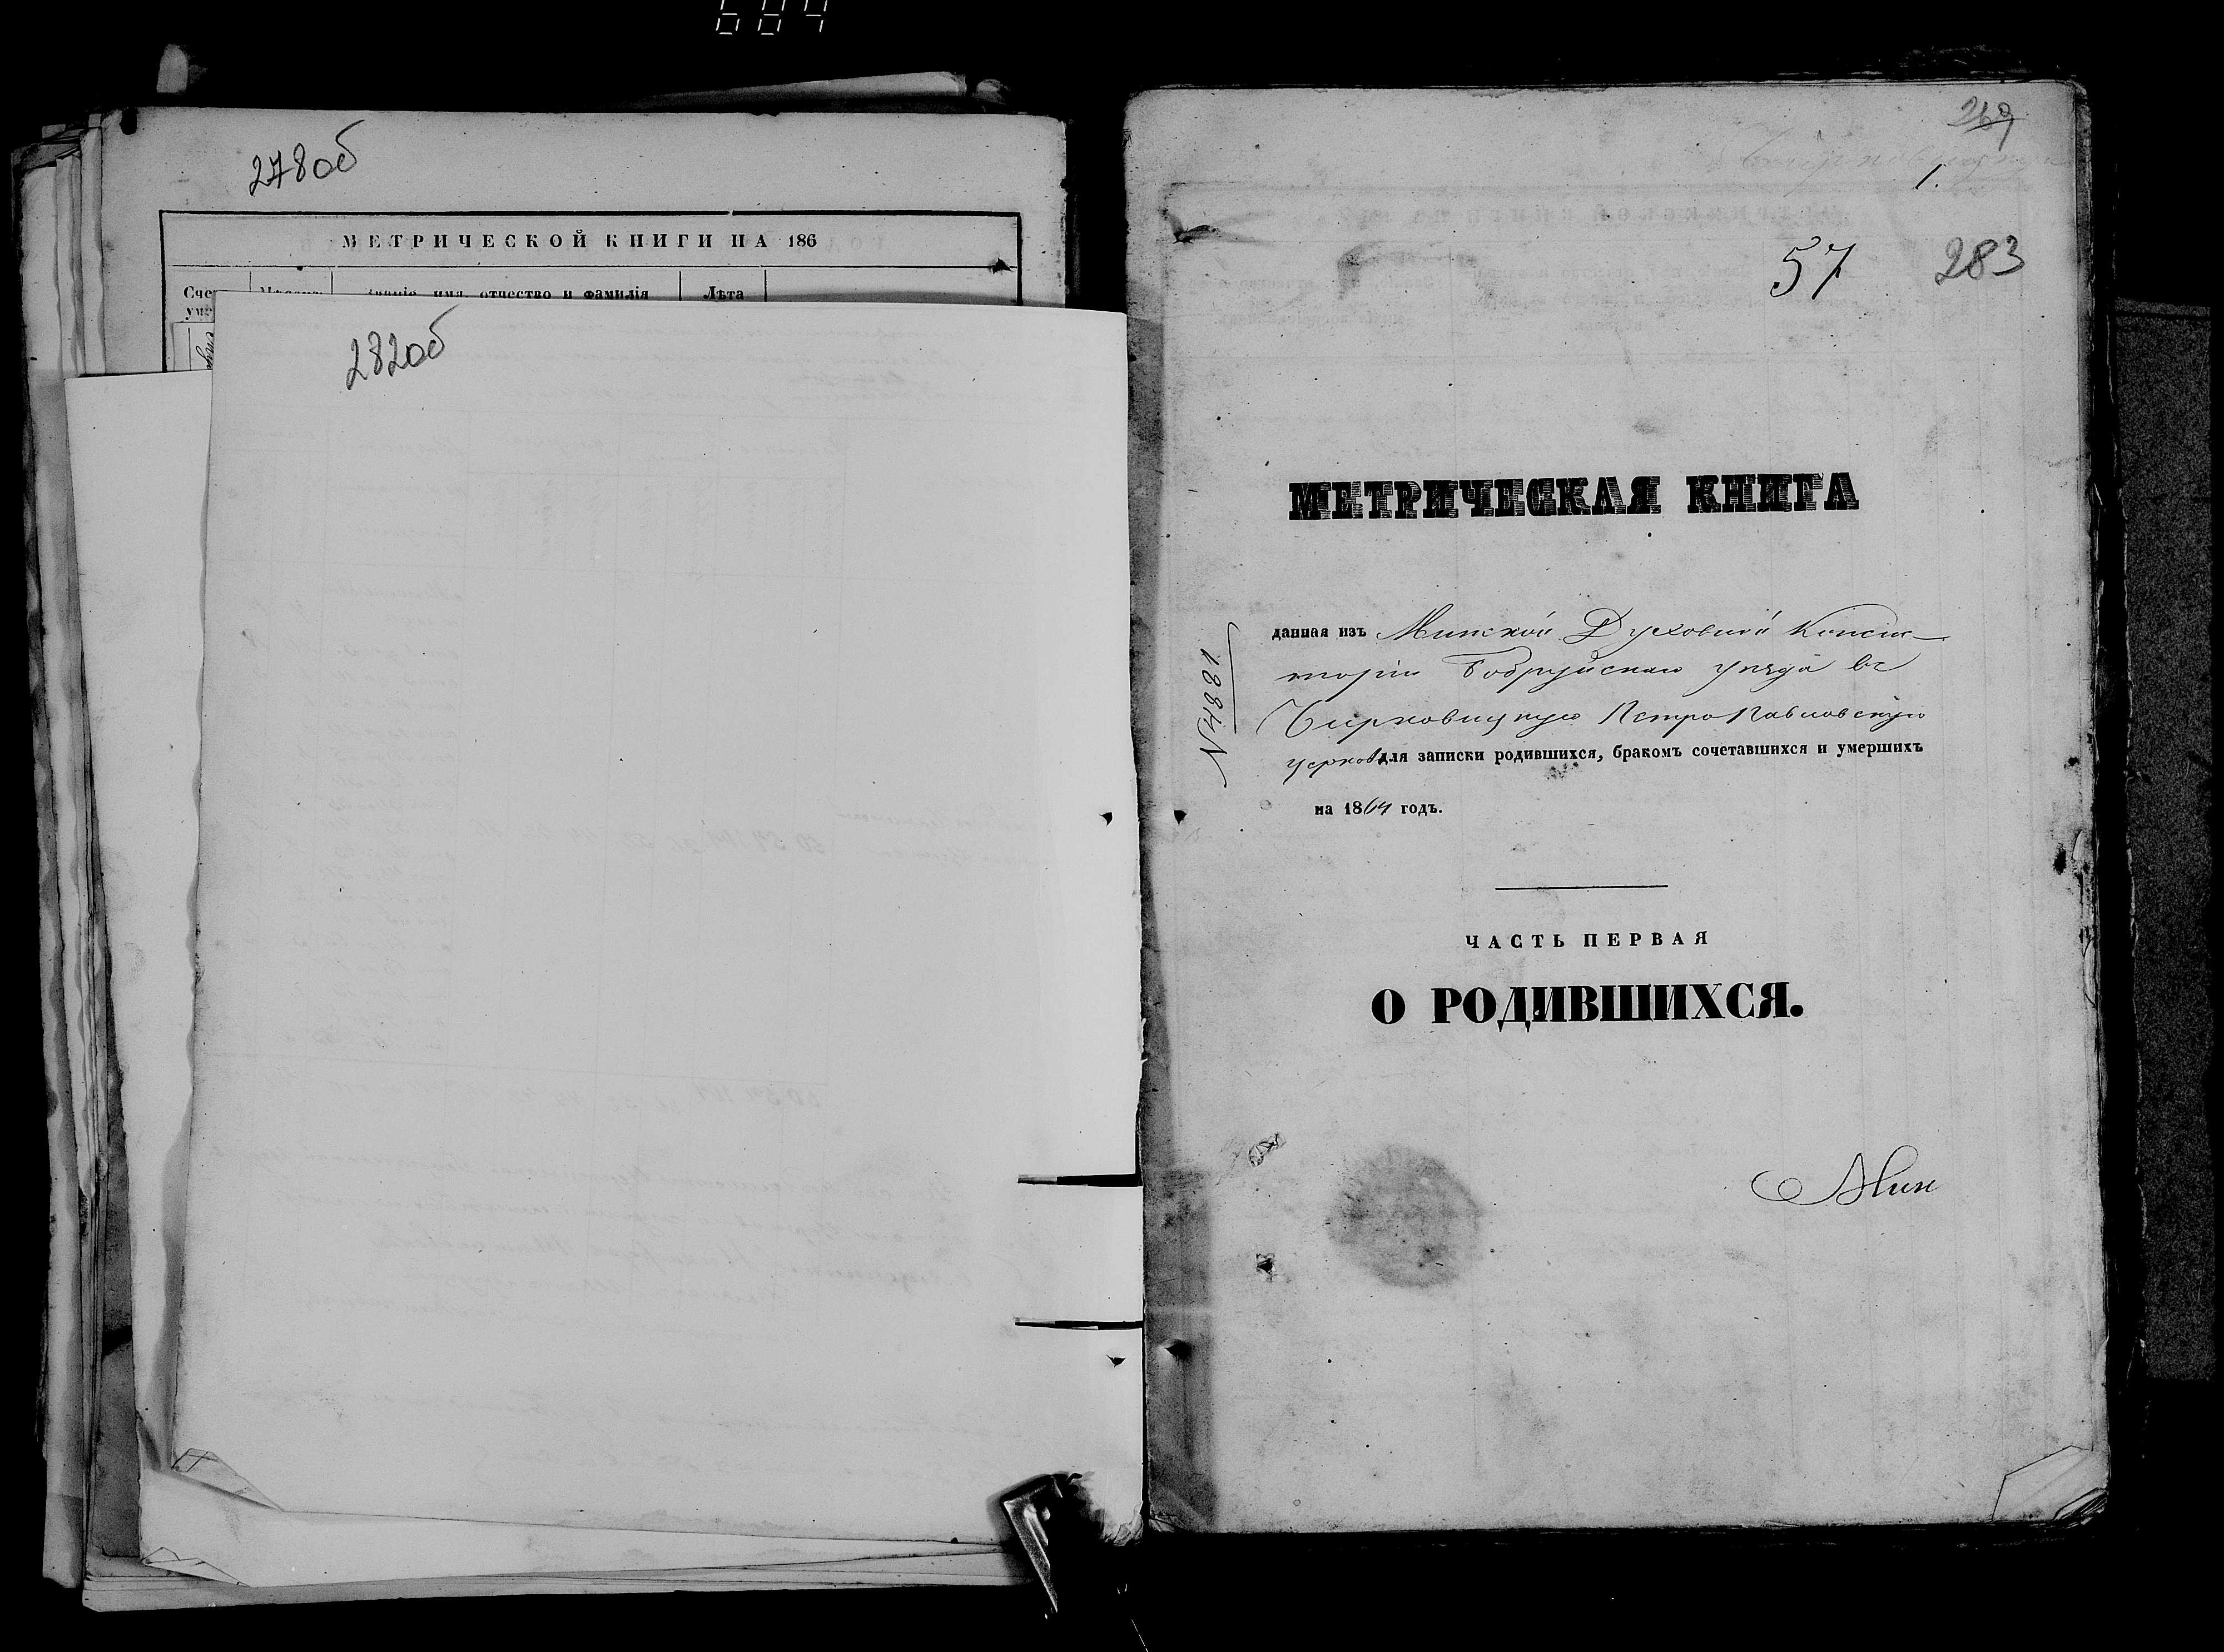 684
278об
МЕТРИЧЕСКОЙ КНИГИ НА 186
Званіе, имя, отчество и фамилія
Лѣта
282об
269
1.
57
283
МЕТРИЧЕСКАЯ КНИГА
данная изъ Минской Духовной Консис-
торіи Бобруйскаго уѣзда въ
Чирковицкую Петро Павловскую
церковь для записки родившихся, бракомъ сочетавшихся и умершихъ
на 1864 годъ.
N 1884
ЧАСТЬ ПЕРВАЯ
О РОДИВШИХСЯ.
Мин